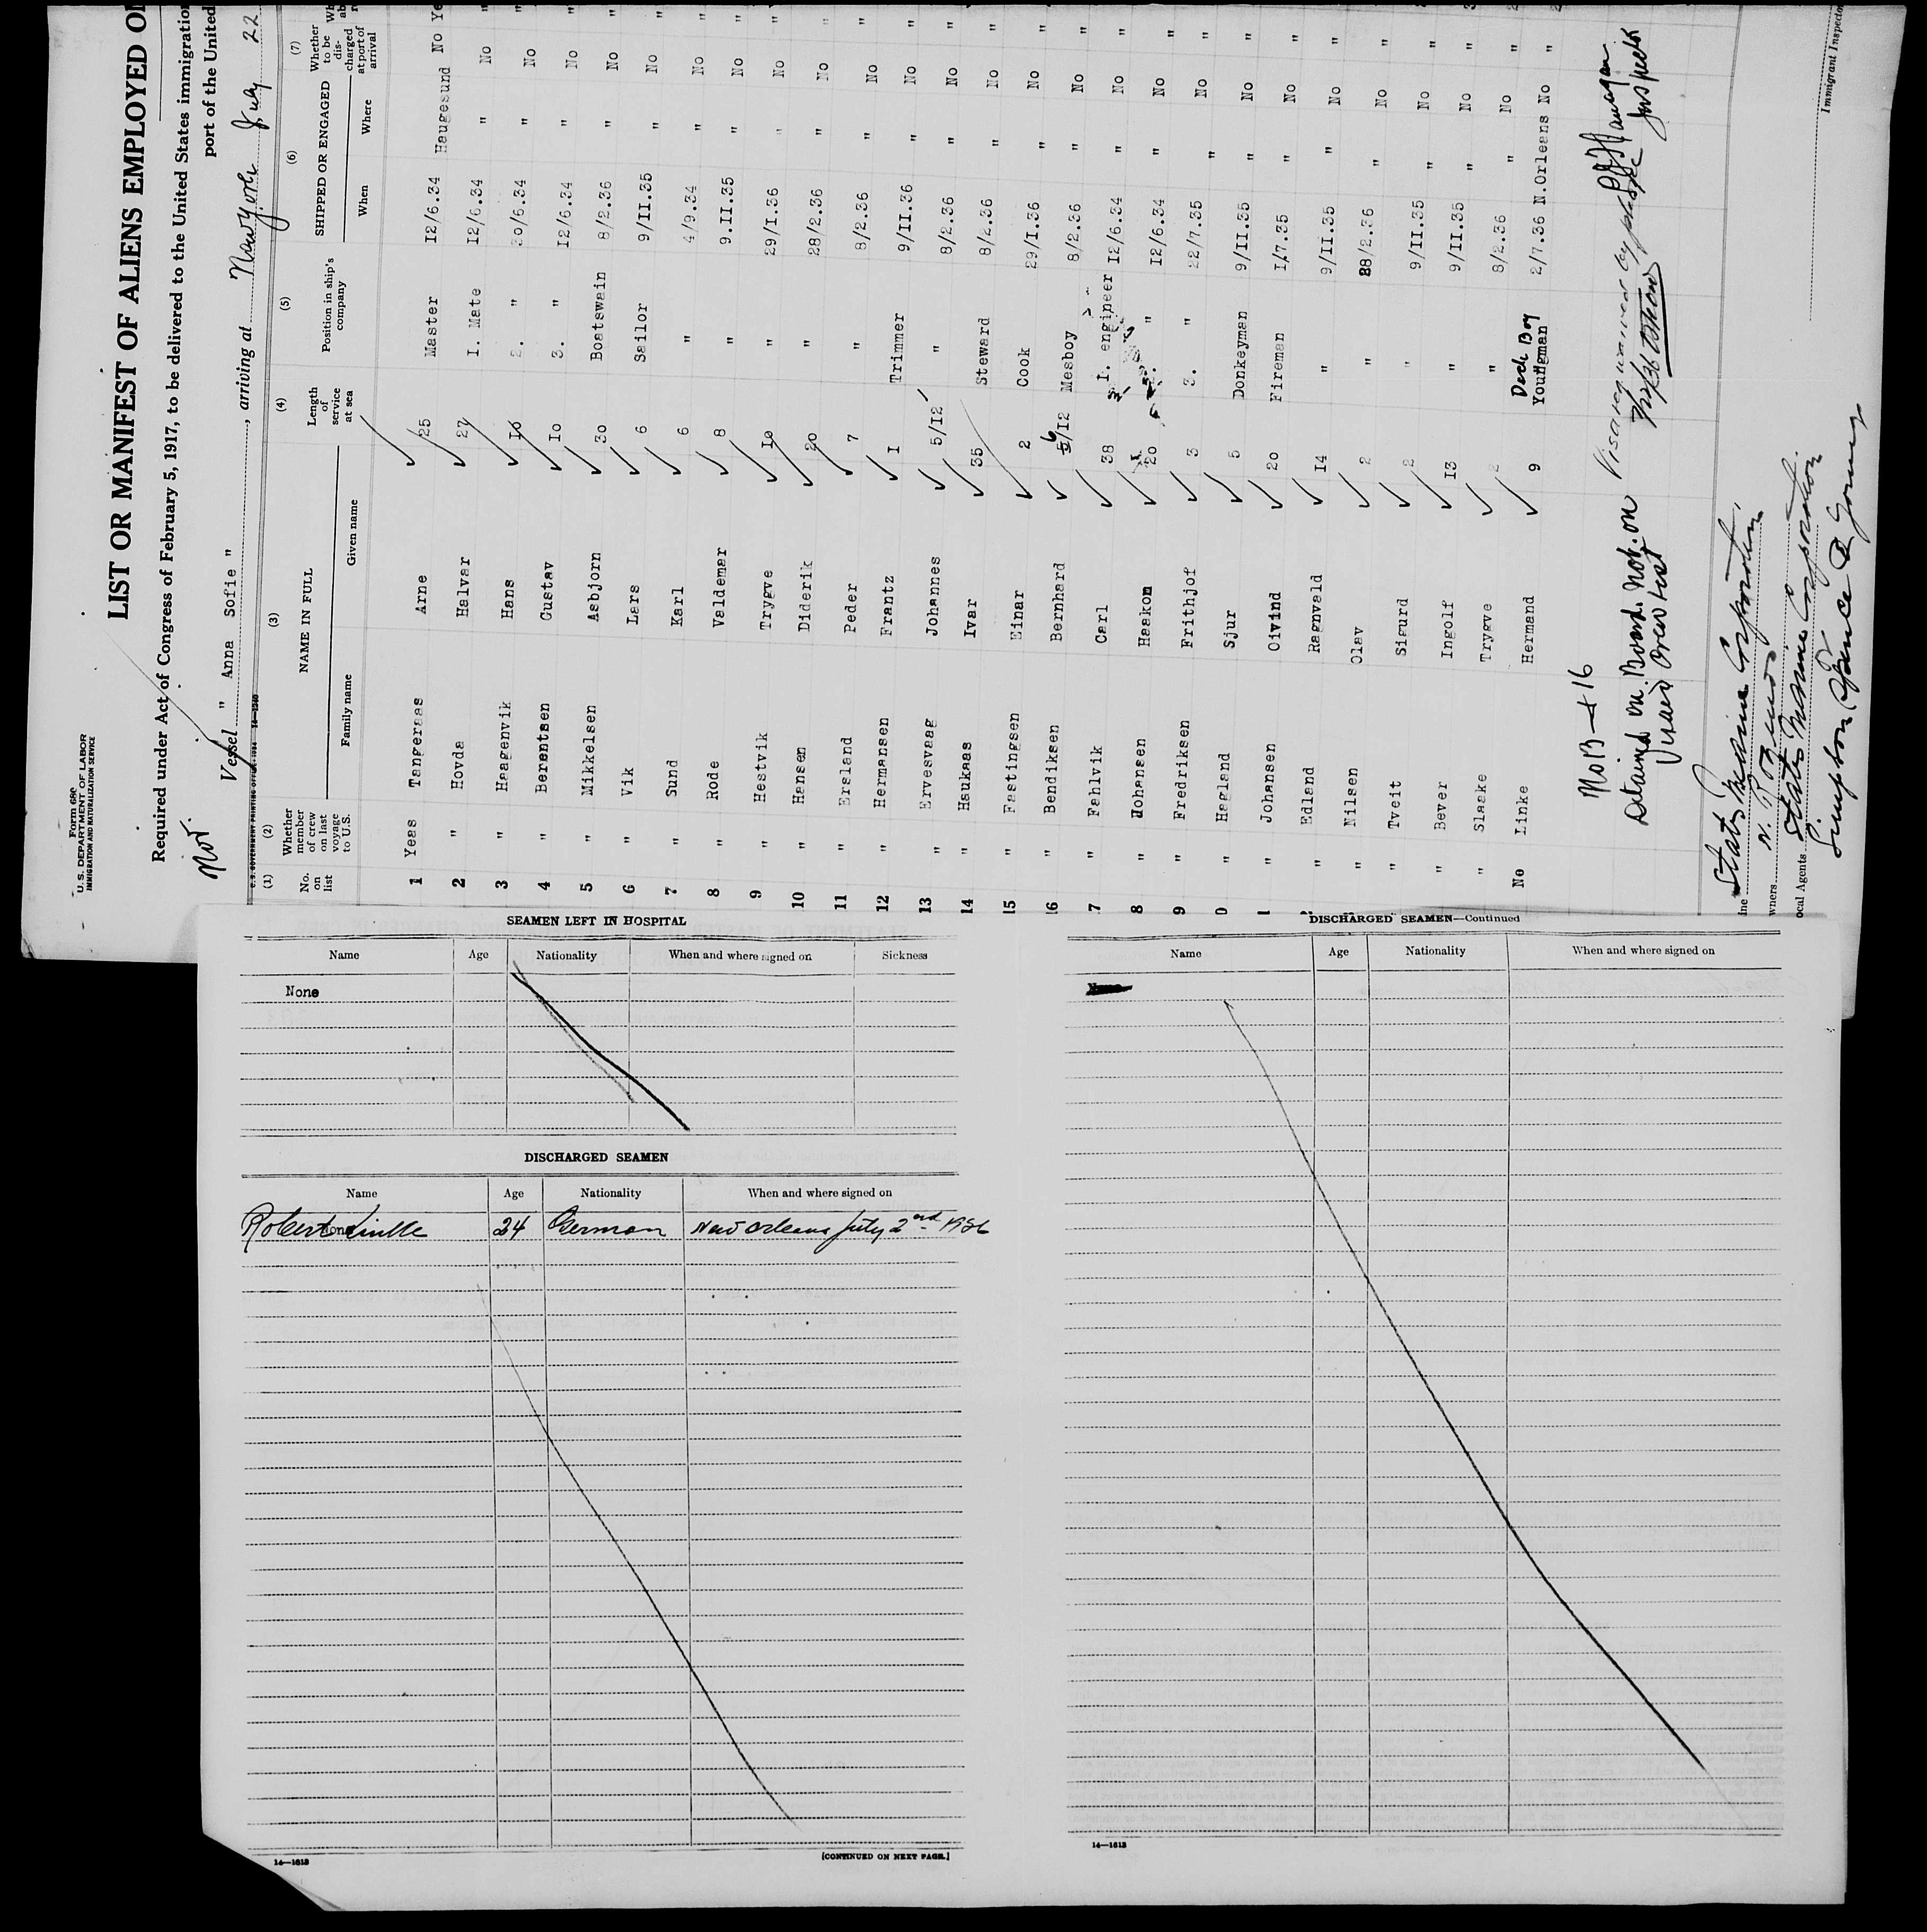 Form 680
U.S. DEPARTMENT OF LABOR
IMMIGRATION AND NATURALIZATION SERVICE
LIST OR MANIFEST OF ALIENS EMPLOYED ON
Required under Act of Congress of February 5, 1917, to be delivered to the United States immigration
port of the United
Nor.
Vessel " Anna Sofie ", arriving at New York July 22
U.S. GOVERNMENT PRINTING OFFICE
(1) (2) (3) (4) (5) (6) (7)
No. on list Whether member of crew on last voyage to U.S. NAME IN FULL Length of service at sea Position in ship's company SHIPPED OR ENGAGED Whether to be discharged at port of arrival
Family name Given name When Where
1 Yeas Tangeraas Arne 25 Master 12/6.34 Haugesund No Ye
2 " Hovda Halvar 27 I. Mate 12/6.34 " No "
3 " Haagenvik Hans 10 2. " 30/6.34 " No "
4 " Berentsen Gustav 10 3. " 12/6.34 " No "
5 " Mikkelsen Asbjorn 30 Boatswain 8/2.36 " No "
6 " Vik Lars 6 Sailor 9/II.35 " No "
7 " Sund Karl 6 " 4/9.34 " No "
8 " Rode Valdemar 8 " 9.II.35 " No "
9 " Hestvik Trygve 10 " 29/I.36 " No "
10 " Hansen Diderik 20 " 28/2.36 " No "
11 " Ersland Peder 7 " 8/2.36 " No "
12 " Hermansen Frantz I Trimmer 9/II.36 " No "
13 " Ervesvaag Johannes 5/12 " 8/2.36 " No "
14 " Haukaas Ivar 35 Steward 8/2.36 " No "
15 " Fastingsen Einar 2 Cook 29/I.36 " No "
16 " Bendiksen Bernhard 6/12 Mesboy 8/2.36 " No "
7 " Fahlvik Carl 38 I. engineer 12/6.34 " No "
8 " Johansen Haakon 20 " 12/6.34 " No "
9 " Fredriksen Frithjof 3 3. " 22/7.35 " No "
0 " Hagland Sjur 5 Donkeyman 9/II.35 " No "
1 " Johansen Oivind 20 Fireman I/7.35 " No "
" Edland Ragnvald 14 " 9/II.35 " No "
" Nilsen Olav 2 " 28/2.36 " No "
" Tveit Sigurd 2 " 9/II.35 " No "
" Bever Ingolf 13 " 9/II.35 " No "
" Slaake Trygve 2 " 8/2.36 " No "
No Linke Hermand 9 Deck Boy Youngman 2/7.36 N.Orleans No "
Detained on Board. Not. on
Visaed Crew List
Inspector
Immigrant Inspector
ine States Marine Corporation,
wners
ocal Agents States Marine Corporation
Simpson Spence & Young
SEAMEN LEFT IN HOSPITAL
Name Age Nationality When and where signed on Sickness
None
DISCHARGED SEAMEN
Name Age Nationality When and where signed on
Robert Linke 24 German New Orleans July 2nd 1936
14—1613
[CONTINUED ON NEXT PAGE.]
DISCHARGED SEAMEN—Continued
Name Age Nationality When and where signed on
14—1613